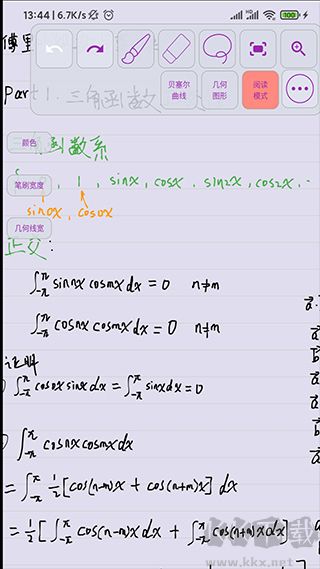 13:44 | 6.7K/s
100
贝塞尔曲线
几何图形
阅读模式
Part 1. 三角函数
颜色
函数系
笔刷宽度
, 1, sinx, cosx, sin2x, cos2x, ..
sin0x, cos0x
几何线宽
正交:
∫_{-π}^{π} sin nx cos mx dx = 0 n≠m
∫_{-π}^{π} cos nx cos mx dx = 0 n≠m
证明
∫_{-π}^{π} cos0x sinx dx = ∫_{-π}^{π} sinx dx = 0
∫_{-π}^{π} cos nx cos mx dx
= ∫_{-π}^{π} 1/2 [cos(n-m)x + cos(n+m)x] dx
= 1/2 [∫_{-π}^{π} cos(n-m)x dx + ∫_{-π}^{π} cos(n+m)x dx]
KK下载
www.kkx.net